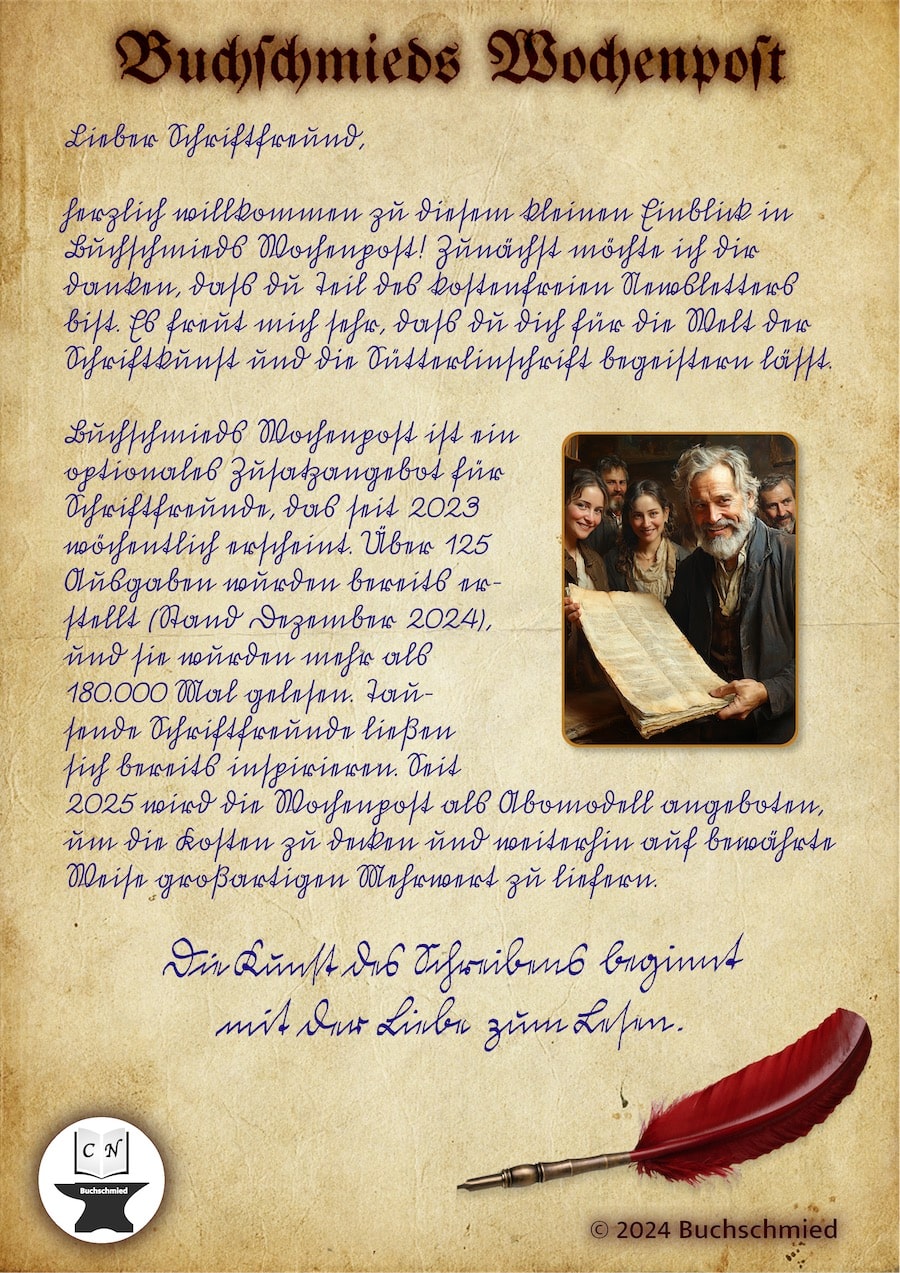 Buchschmieds Wochenpost
Lieber Schriftfreund,
herzlich willkommen zu diesem kleinen Einblick in
Buchschmieds Wochenpost! Zunächst möchte ich dir
danken, dass du Teil des kostenfreien Newsletters
bist. Es freut mich sehr, dass du dich für die Welt der
Schriftkunst und die Sütterlinschrift begeistern lässt.
Buchschmieds Wochenpost ist ein
optionales Zusatzangebot für
Schriftfreunde, das seit 2023
wöchentlich erscheint. Über 125
Ausgaben wurden bereits er-
stellt (Stand Dezember 2024),
und sie wurden mehr als
180.000 Mal gelesen. Tau-
sende Schriftfreunde ließen
sich bereits inspirieren. Seit
2025 wird die Wochenpost als Abomodell angeboten,
um die Kosten zu decken und weiterhin auf bewährte
Weise großartigen Mehrwert zu liefern.
Die Kunst des Schreibens beginnt
mit der Liebe zum Lesen.
C N
Buchschmied
© 2024 Buchschmied